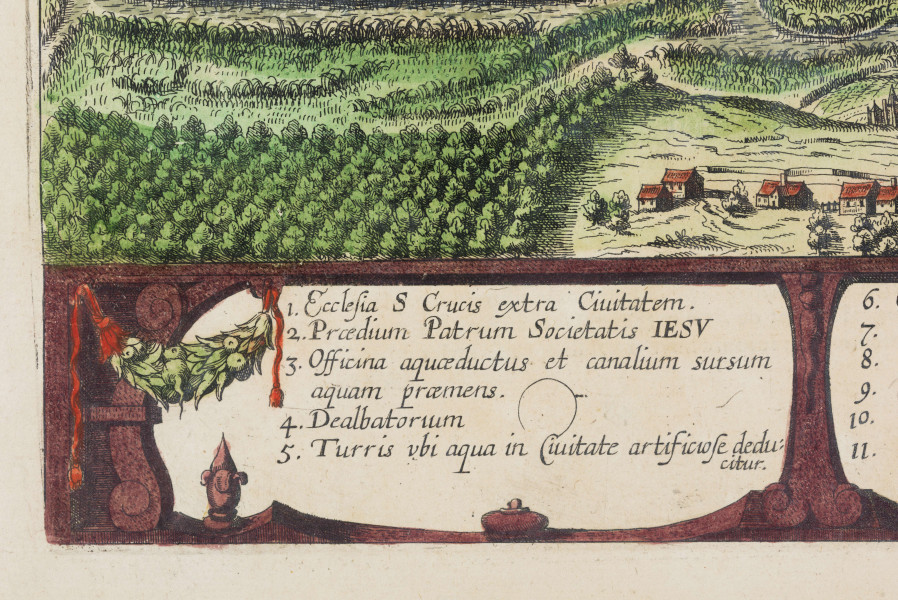 1. Ecclesia S Crucis extra Ciuitatem.
2. Prædium Patrum Societatis IESV
3. Officina aquæductus et canalium sursum
aquam præmens.
4. Dealbatorium
5. Turris vbi aqua in Ciuitate artificiose dedu:
citur.
6.
7.
8.
9.
10.
11.